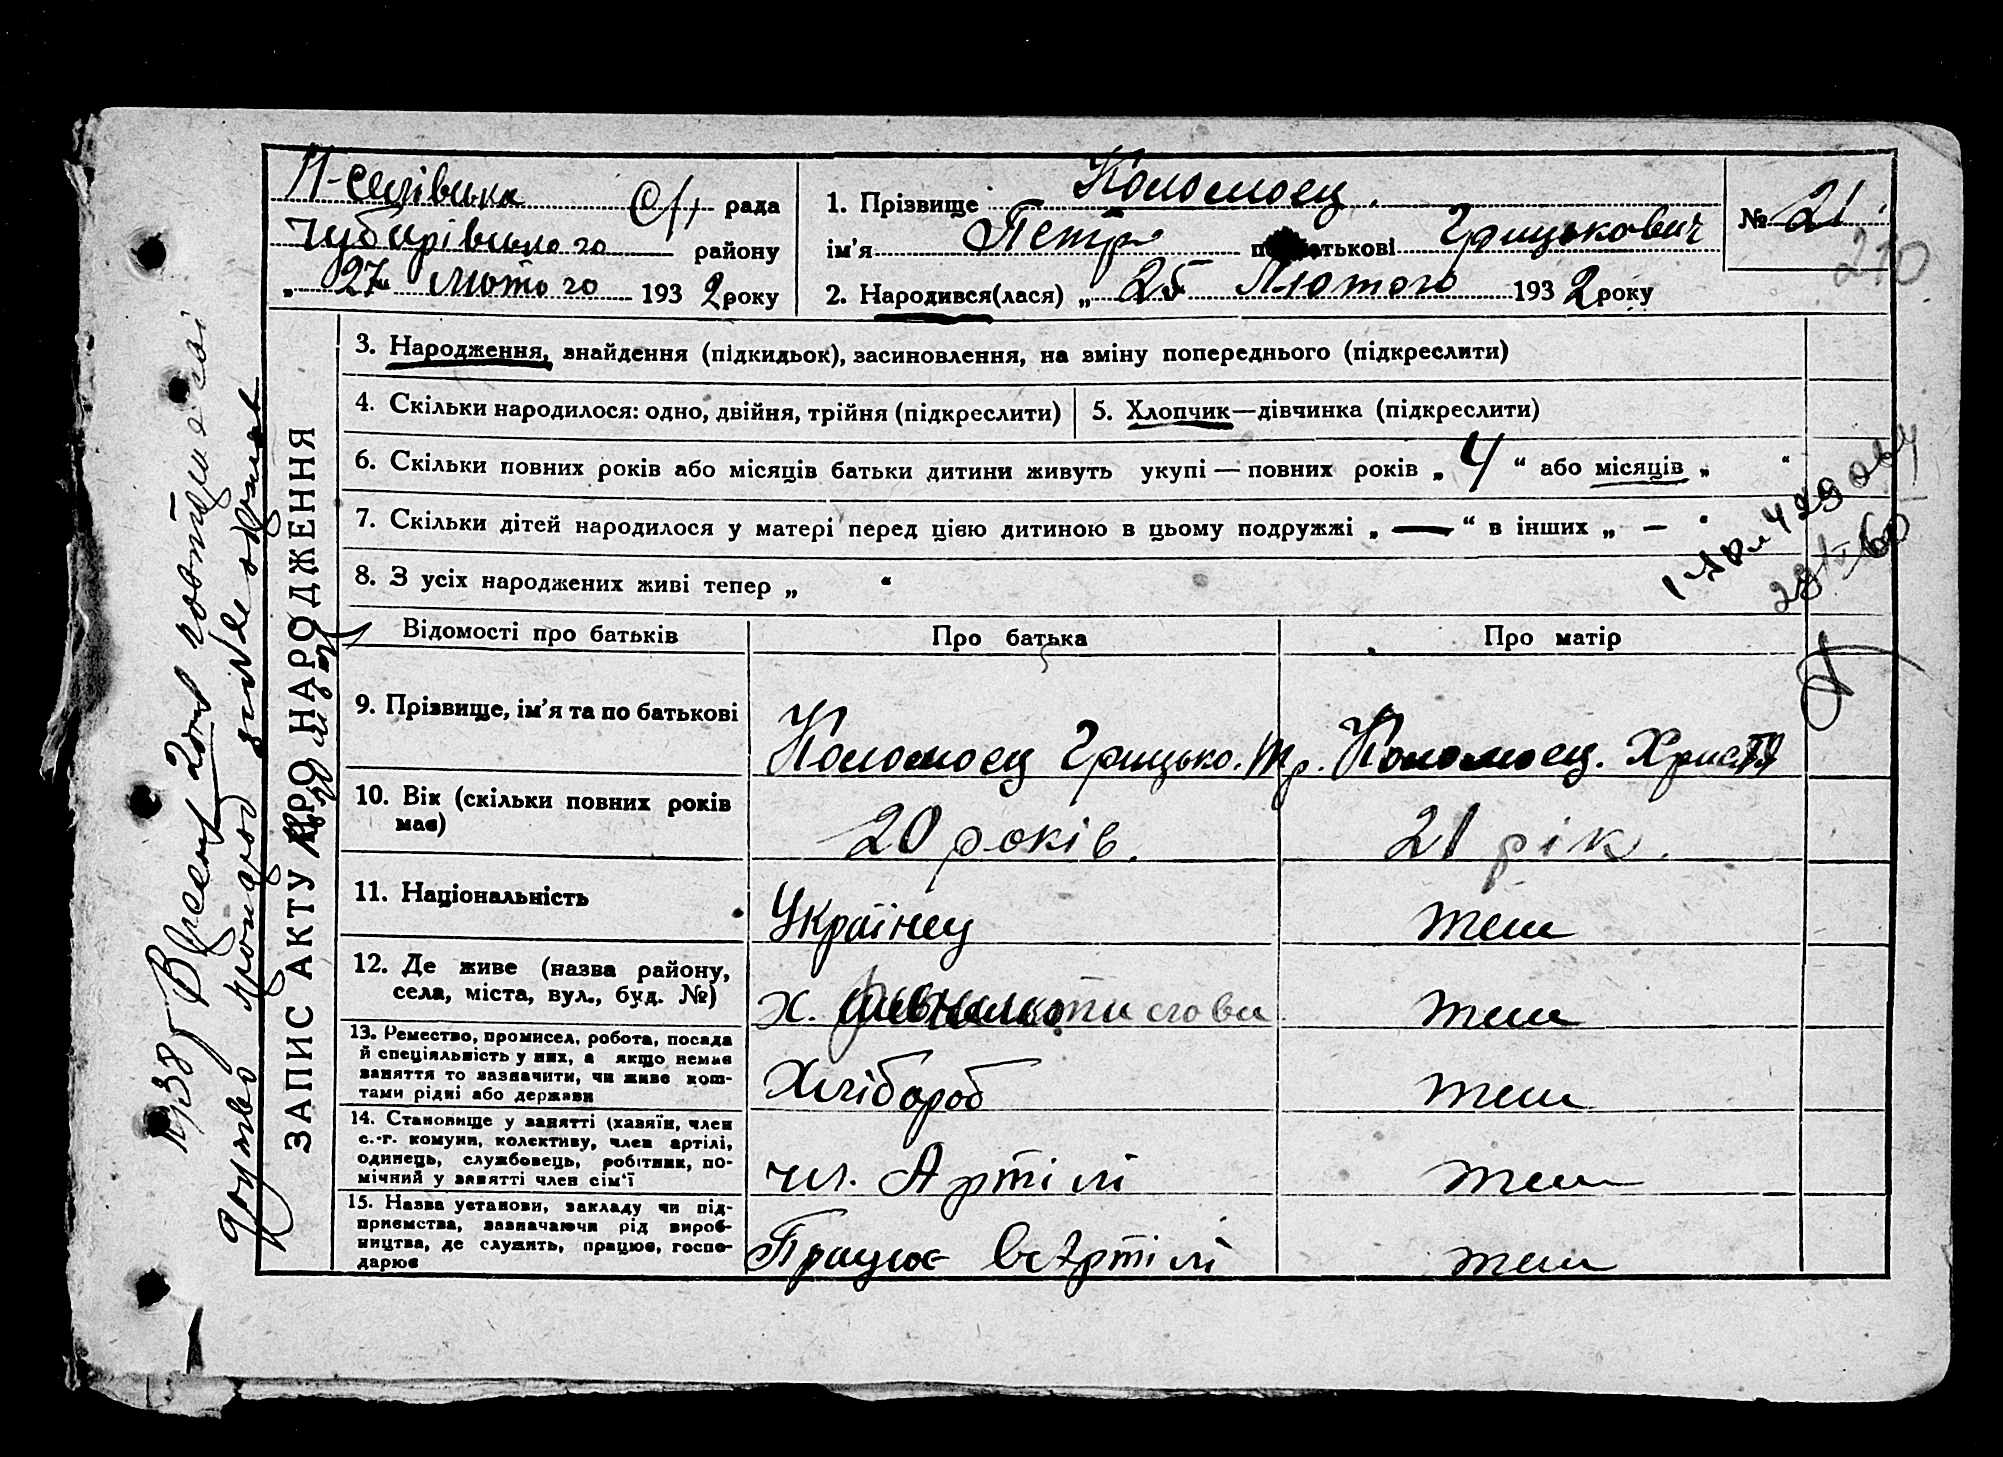 Н-селівська с/р рада
Чубарівського району
„ 27 „ Лютого 1932 року
1. Прізвище Коломоец.
ім'я Петр по батькові Грицькович
2. Народився(лася) „ 25 Лютого 1932 року
№ 21
210
ЗАПИС АКТУ ПРО НАРОДЖЕННЯ
3. Народження, знайдення (підкидьок), засиновлення, на зміну попереднього (підкреслити)
4. Скільки народилося: одно, двійня, трійня (підкреслити)
5. Хлопчик—дівчинка (підкреслити)
6. Скільки повних років або місяців батьки дитини живуть укупі — повних років „ 4 “ або місяців „ “
7. Скільки дітей народилося у матері перед цією дитиною в цьому подружжі „ — “ в інших „ — “
8. З усіх народжених живі тепер „ “
Відомості про батьків
Про батька
Про матір
9. Прізвище, ім'я та по батькові
Коломоец Грицько. Тр.
Коломоец. Христя
10. Вік (скільки повних років
має)
20 років.
21 рік.
11. Національність
Українец
теш
12. Де живе (назва району,
села, міста, вул., буд. №)
х.
теш
13. Ремество, промисел, робота, посада
й спеціяльність у них, а якщо немає
заняття то зазначити, чи живе кош-
тами рідні або держави
Хлібороб
теш
14. Становище у занятті (хазяїн, член
с.-г. комуни, колективу, член артілі,
одинець, службовець, робітник, по-
мічний у занятті член сім'ї
чл. Артілі
теш
15. Назва установи, закладу чи під-
приємства, зазначаючи рід вироб-
ництва, де служить, працює, госпо-
дарює
Працює в Артілі
теш